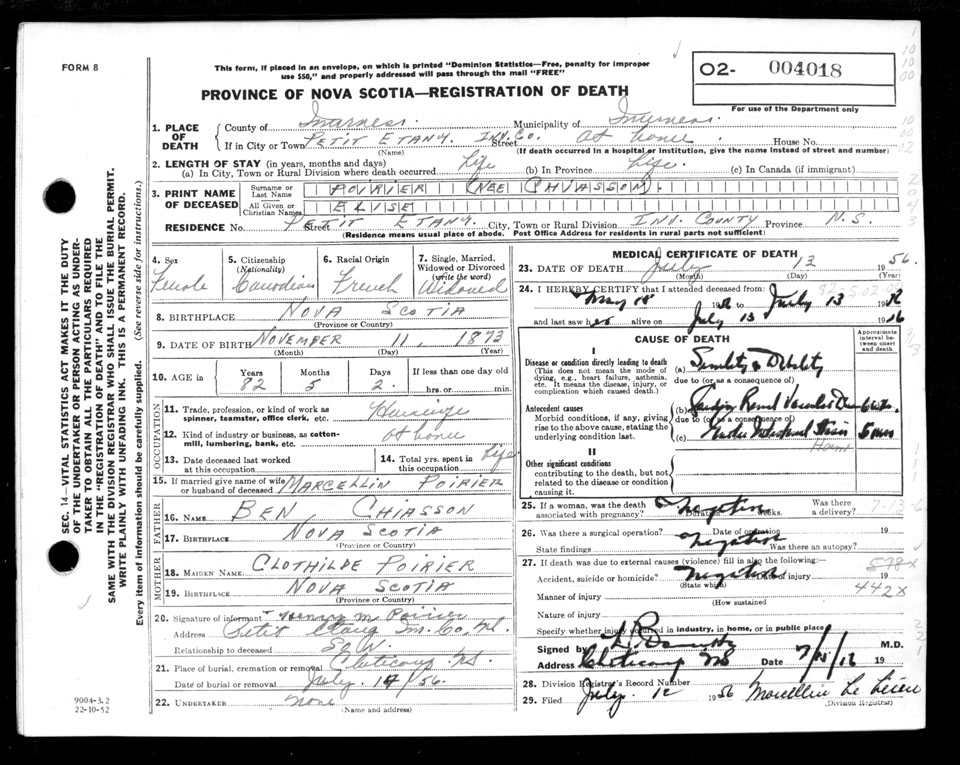 FORM 8
This form, if placed in an envelope, on which is printed "Dominion Statistics—Free, penalty for improper
use $50," and properly addressed will pass through the mail "FREE"
PROVINCE OF NOVA SCOTIA—REGISTRATION OF DEATH
O2- 004018
For use of the Department only
1. PLACE OF DEATH
County of Inverness. Municipality of Inverness.
If in City or Town PETIT ETANG. INV. CO. Street At home. House No.
(Name) (If death occurred in a hospital or institution, give the name instead of street and number)
2. LENGTH OF STAY (in years, months and days)
(a) In City, Town or Rural Division where death occurred Life (b) In Province Life. (c) In Canada (if immigrant)
3. PRINT NAME OF DECEASED
Surname or Last Name POIRIER (NEE CHIASSON).
All Given or Christian Names ELISE
RESIDENCE No. PETIT ETANG. Street City, Town or Rural Division INV. COUNTY Province N.S.
(Residence means usual place of abode. Post Office Address for residents in rural parts not sufficient)
4. Sex Female
5. Citizenship (Nationality) Canadian
6. Racial Origin French
7. Single, Married, Widowed or Divorced (write the word) Widowed
8. BIRTHPLACE NOVA SCOTIA
(Province or Country)
9. DATE OF BIRTH NOVEMBER 11, 1873
(Month) (Day) (Year)
10. AGE in Years 82 Months 5 Days 2. If less than one day old hrs. or min.
OCCUPATION
11. Trade, profession, or kind of work as spinner, teamster, office clerk, etc.
12. Kind of industry or business, as cotton-mill, lumbering, bank, etc. At home
13. Date deceased last worked at this occupation
14. Total yrs. spent in this occupation Life
15. If married give name of wife or husband of deceased MARCELLIN POIRIER
FATHER
16. NAME BEN CHIASSON
17. BIRTHPLACE NOVA SCOTIA
(Province or Country)
MOTHER
18. MAIDEN NAME CLOTHILDE POIRIER
19. BIRTHPLACE NOVA SCOTIA
(Province or Country)
20. Signature of informant M Poirier
Address Petit Etang Inv. Co, N.S.
Relationship to deceased Son.
21. Place of burial, cremation or removal Cheticamp N.S.
Date of burial or removal July. 14/56.
22. UNDERTAKER none
(Name and address)
MEDICAL CERTIFICATE OF DEATH
23. DATE OF DEATH July 12 1956.
(Month) (Day) (Year)
24. I HEREBY CERTIFY that I attended deceased from:
May 19 to July 13 19
and last saw h alive on July 13 19
CAUSE OF DEATH
Approximate interval between onset and death
I
Disease or condition directly leading to death
(This does not mean the mode of dying, e.g., heart failure, asthenia, etc. It means the disease, injury, or complication which caused death.)
(a) Senility & Debility
due to (or as a consequence of)
Antecedent causes
Morbid conditions, if any, giving rise to the above cause, stating the underlying condition last.
(b) Renal Vascular
due to (or as a consequence of)
(c)
II
Other significant conditions
contributing to the death, but not related to the disease or condition causing it.
25. If a woman, was the death associated with pregnancy? Negative Duration weeks. Was there a delivery?
26. Was there a surgical operation? Negative Date of operation 19
State findings Was there an autopsy?
27. If death was due to external causes (violence) fill in also the following:—
Accident, suicide or homicide? Negative Date of injury 19
(State which)
442X
Manner of injury
(How sustained)
Nature of injury
Specify whether injury occurred in industry, in home, or in public place
Signed by M.D.
Address Cheticamp NS Date 19
28. Division Registry's Record Number
29. Filed July. 12 1956
(Division Registrar)
9004-3.2
22-10-52
SEC. 14—VITAL STATISTICS ACT MAKES IT THE DUTY
OF THE UNDERTAKER OR PERSON ACTING AS UNDER-
TAKER TO OBTAIN ALL THE PARTICULARS REQUIRED
IN THE "REGISTRATION OF DEATH" AND TO FILE THE
SAME WITH THE DIVISION REGISTRAR WHO SHALL ISSUE THE BURIAL PERMIT.
WRITE PLAINLY WITH UNFADING INK. THIS IS A PERMANENT RECORD.
Every item of information should be carefully supplied. (See reverse side for instructions.)